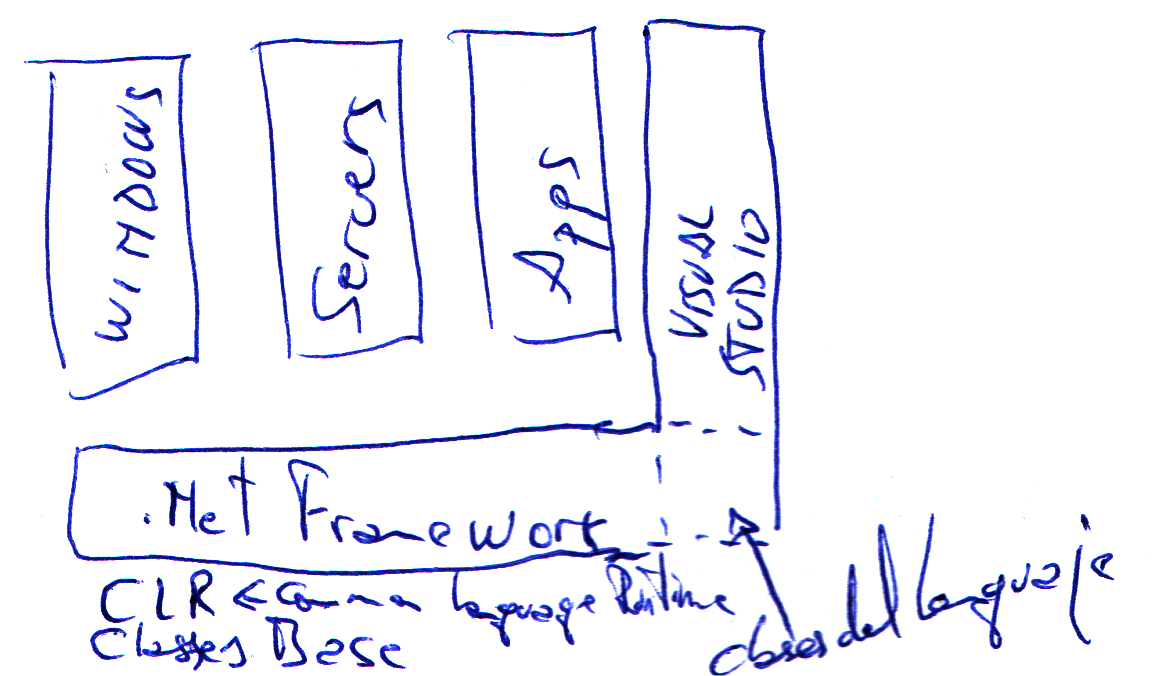 WINDOWS
Servers
Apps
VISUAL
STUDIO
.Net Framework
CLR ← Common Language Runtime
Classes Base
clases del lenguaje